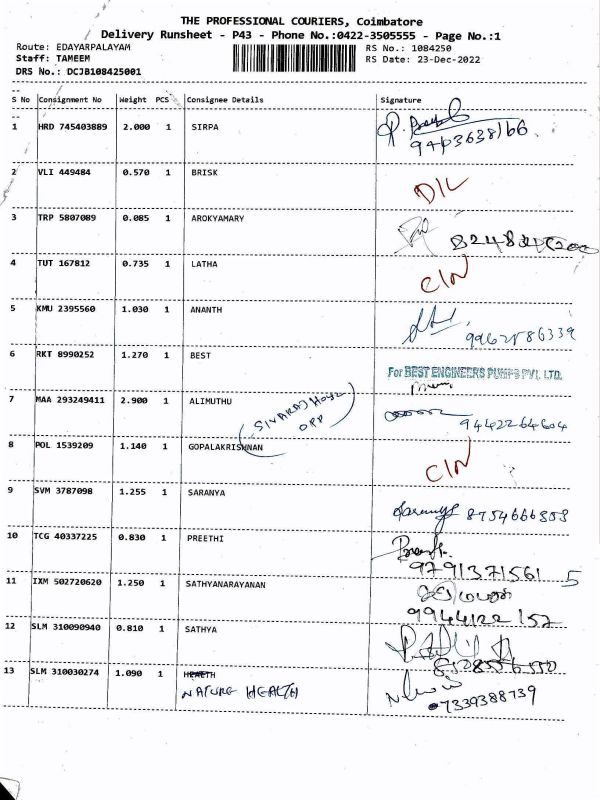 THE PROFESSIONAL COURIERS, Coimbatore
Delivery Runsheet - P43 - Phone No.:0422-3505555 - Page No.:1
Route: EDAYARPALAYAM RS No.: 1084250
Staff: TAMEEM RS Date: 23-Dec-2022
DRS No.: DCJB108425001
S No Consignment No Weight PCS Consignee Details Signature
1 HRD 745403889 2.000 1 SIRPA
2 VLI 449484 0.570 1 BRISK D/L
3 TRP 5807089 0.085 1 AROKYAMARY
4 TUT 167812 0.735 1 LATHA C/N
5 KMU 2395560 1.030 1 ANANTH
6 RKT 8990252 1.270 1 BEST
For BEST ENGINEERS PUMPS PVT. LTD.
7 MAA 293249411 2.900 1 ALIMUTHU
OPP
9442264604
8 POL 1539209 1.140 1 GOPALAKRISHNAN C/N
9 SVM 3787098 1.255 1 SARANYA
10 TCG 40337225 0.830 1 PREETHI
9791371561
11 IXM 502720620 1.250 1 SATHYANARAYANAN
9944122152
12 SLM 310090940 0.810 1 SATHYA
13 SLM 310030274 1.090 1 HEALTH
NATURE HEALTH
7339388739